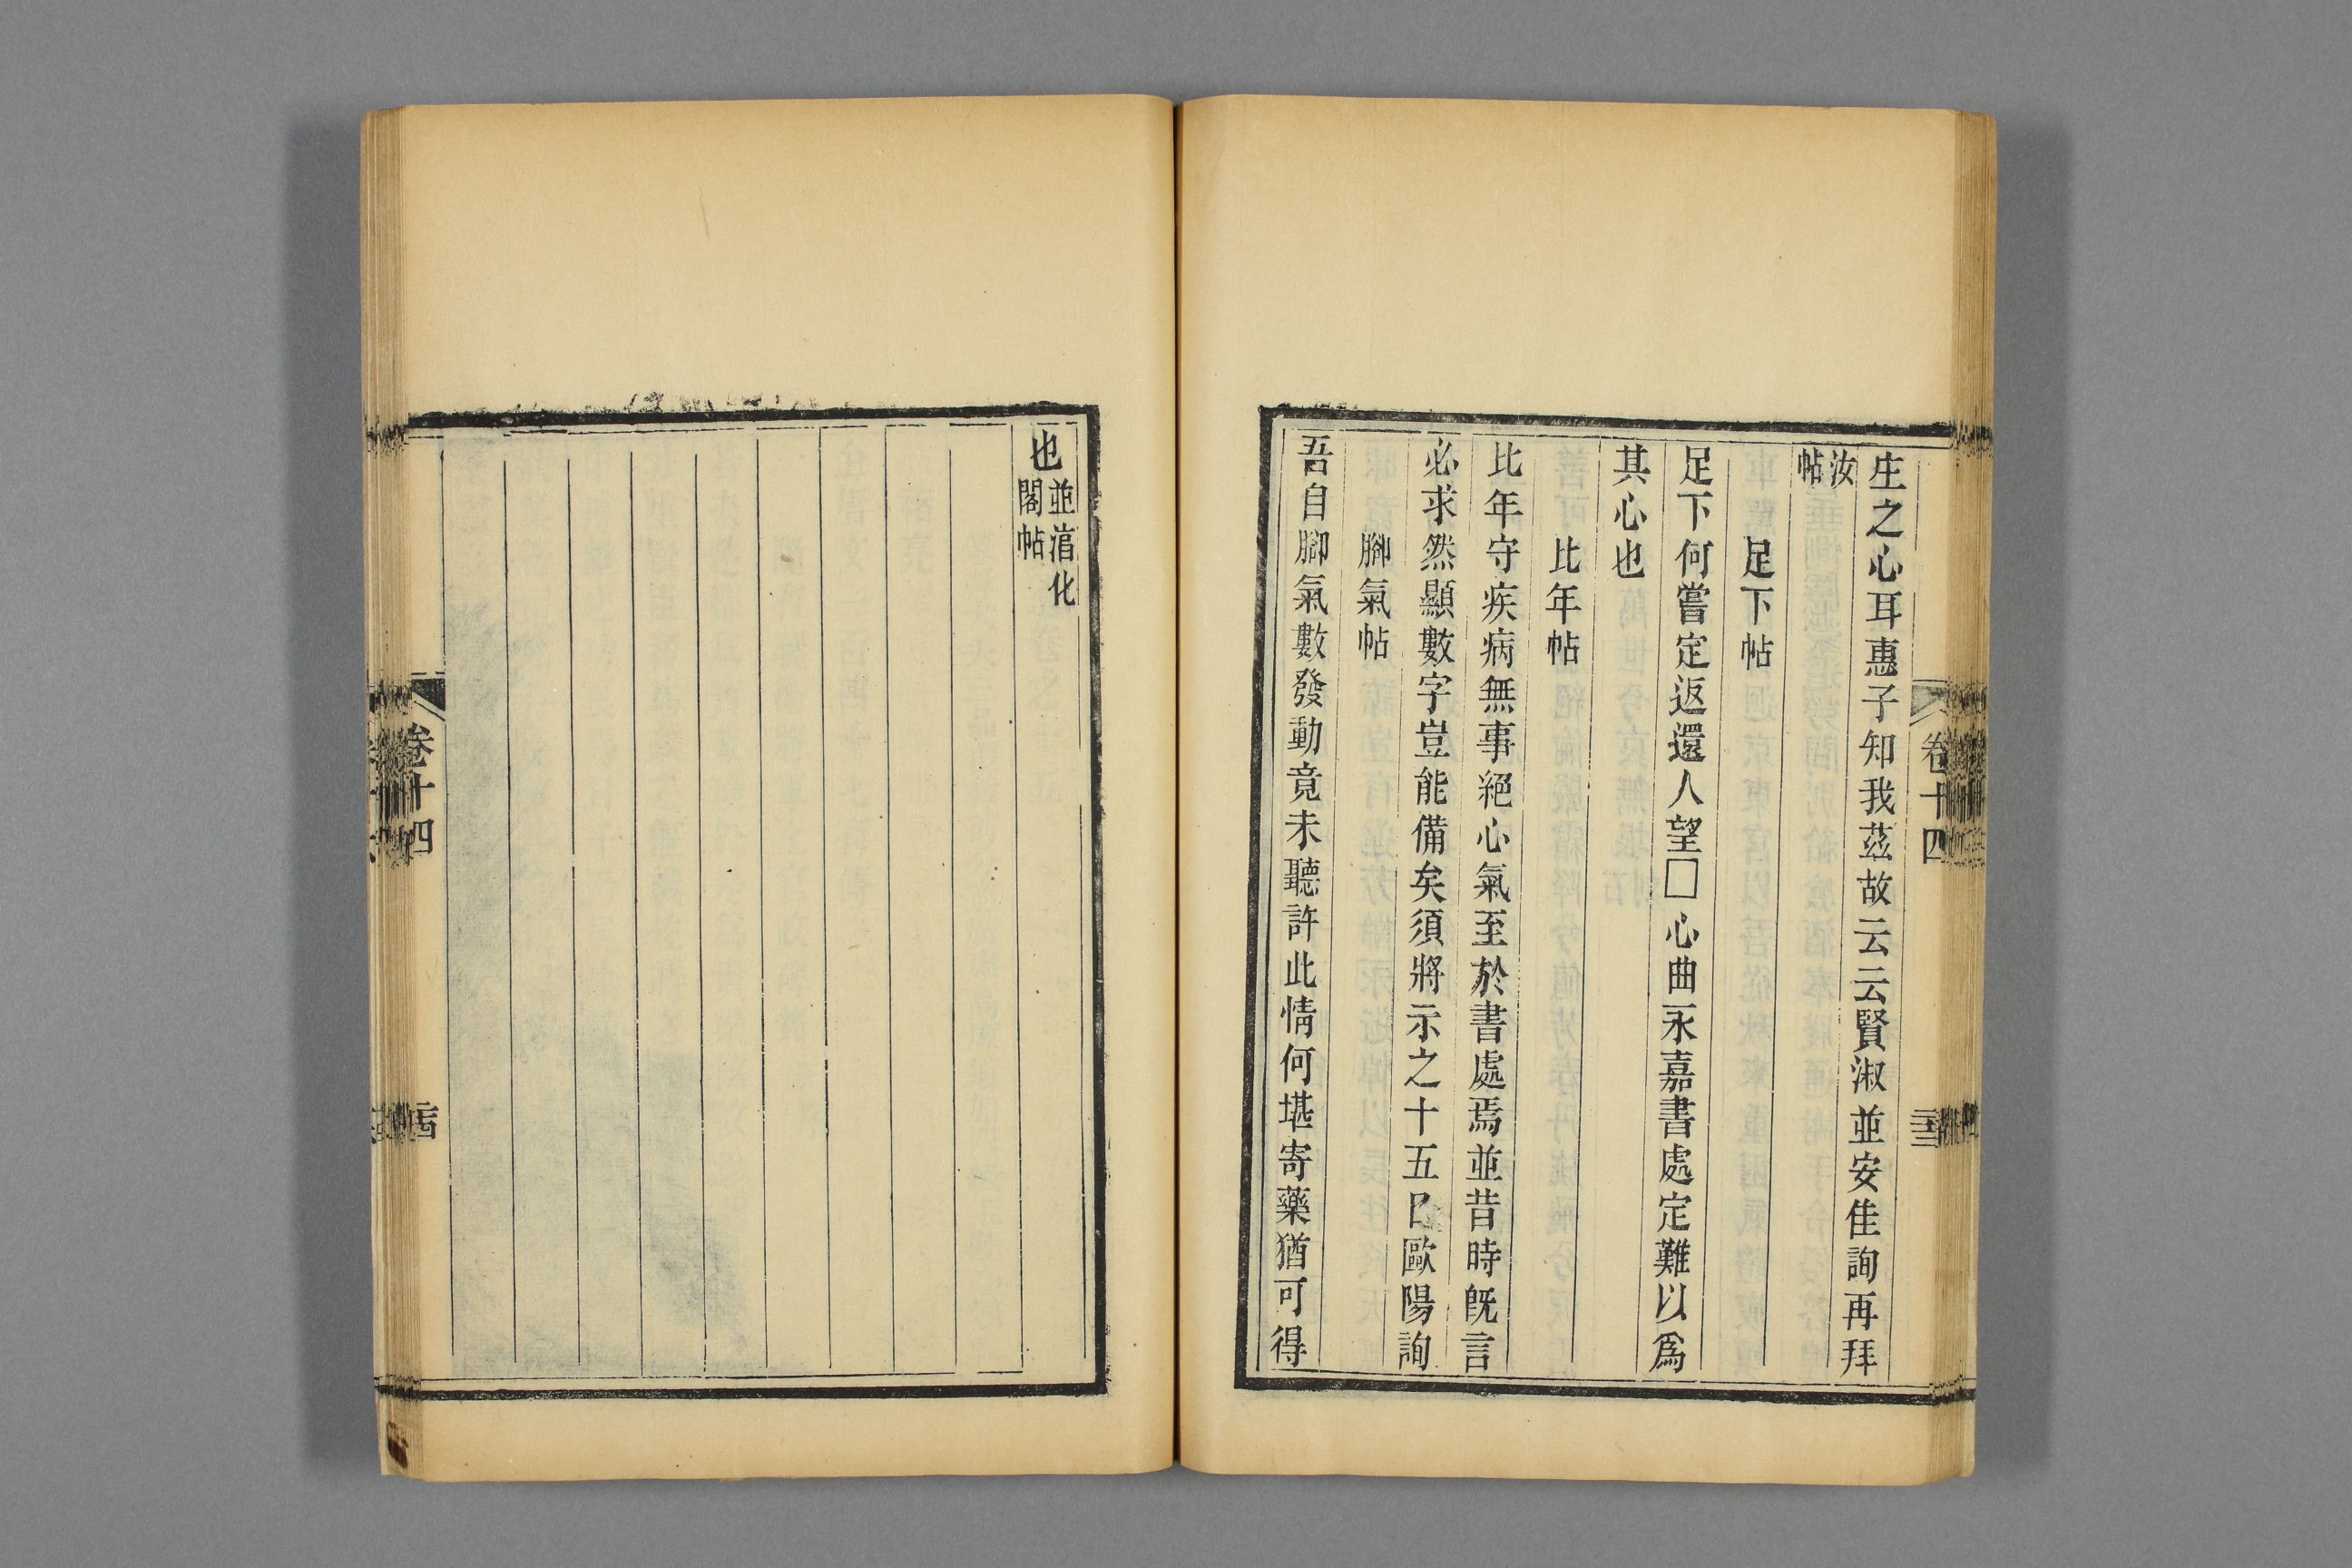 生之心耳惠子知我茲故云云賢淑並安佳詢再拜
汝帖
足下帖
足下何嘗定返還人望□心曲永嘉書處定難以爲
其心也
比年帖
比年守疾病無事絕心氣至於書處焉並昔時旣言
必求然顯數字豈能備矣須將示之十五日歐陽詢
腳氣帖
吾自腳氣數發動竟未聽許此情何堪寄藥猶可得
卷十四
二十三
也並湻化閣帖
卷十四
二十四